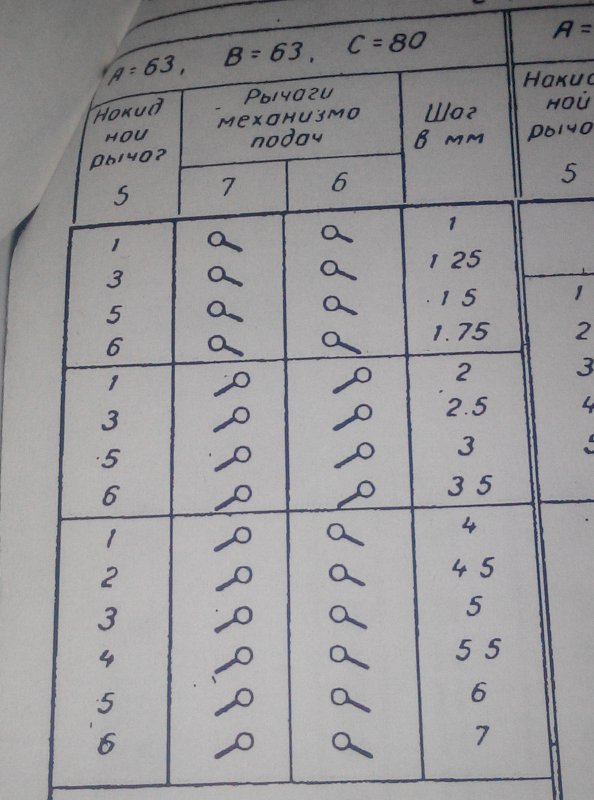 A = 63, B = 63, C = 80
A =
Накид
ной
рычаг
5
Рычаги
механизма
подач
7 6
Шаг
в мм
Накид
ной
рычаг
5
1 1
3 1 25
5 1 5
6 1.75
1 2
3 2.5
5 3
6 3 5
1 4
2 4 5
3 5
4 5 5
5 6
6 7
1
2
3
4
5